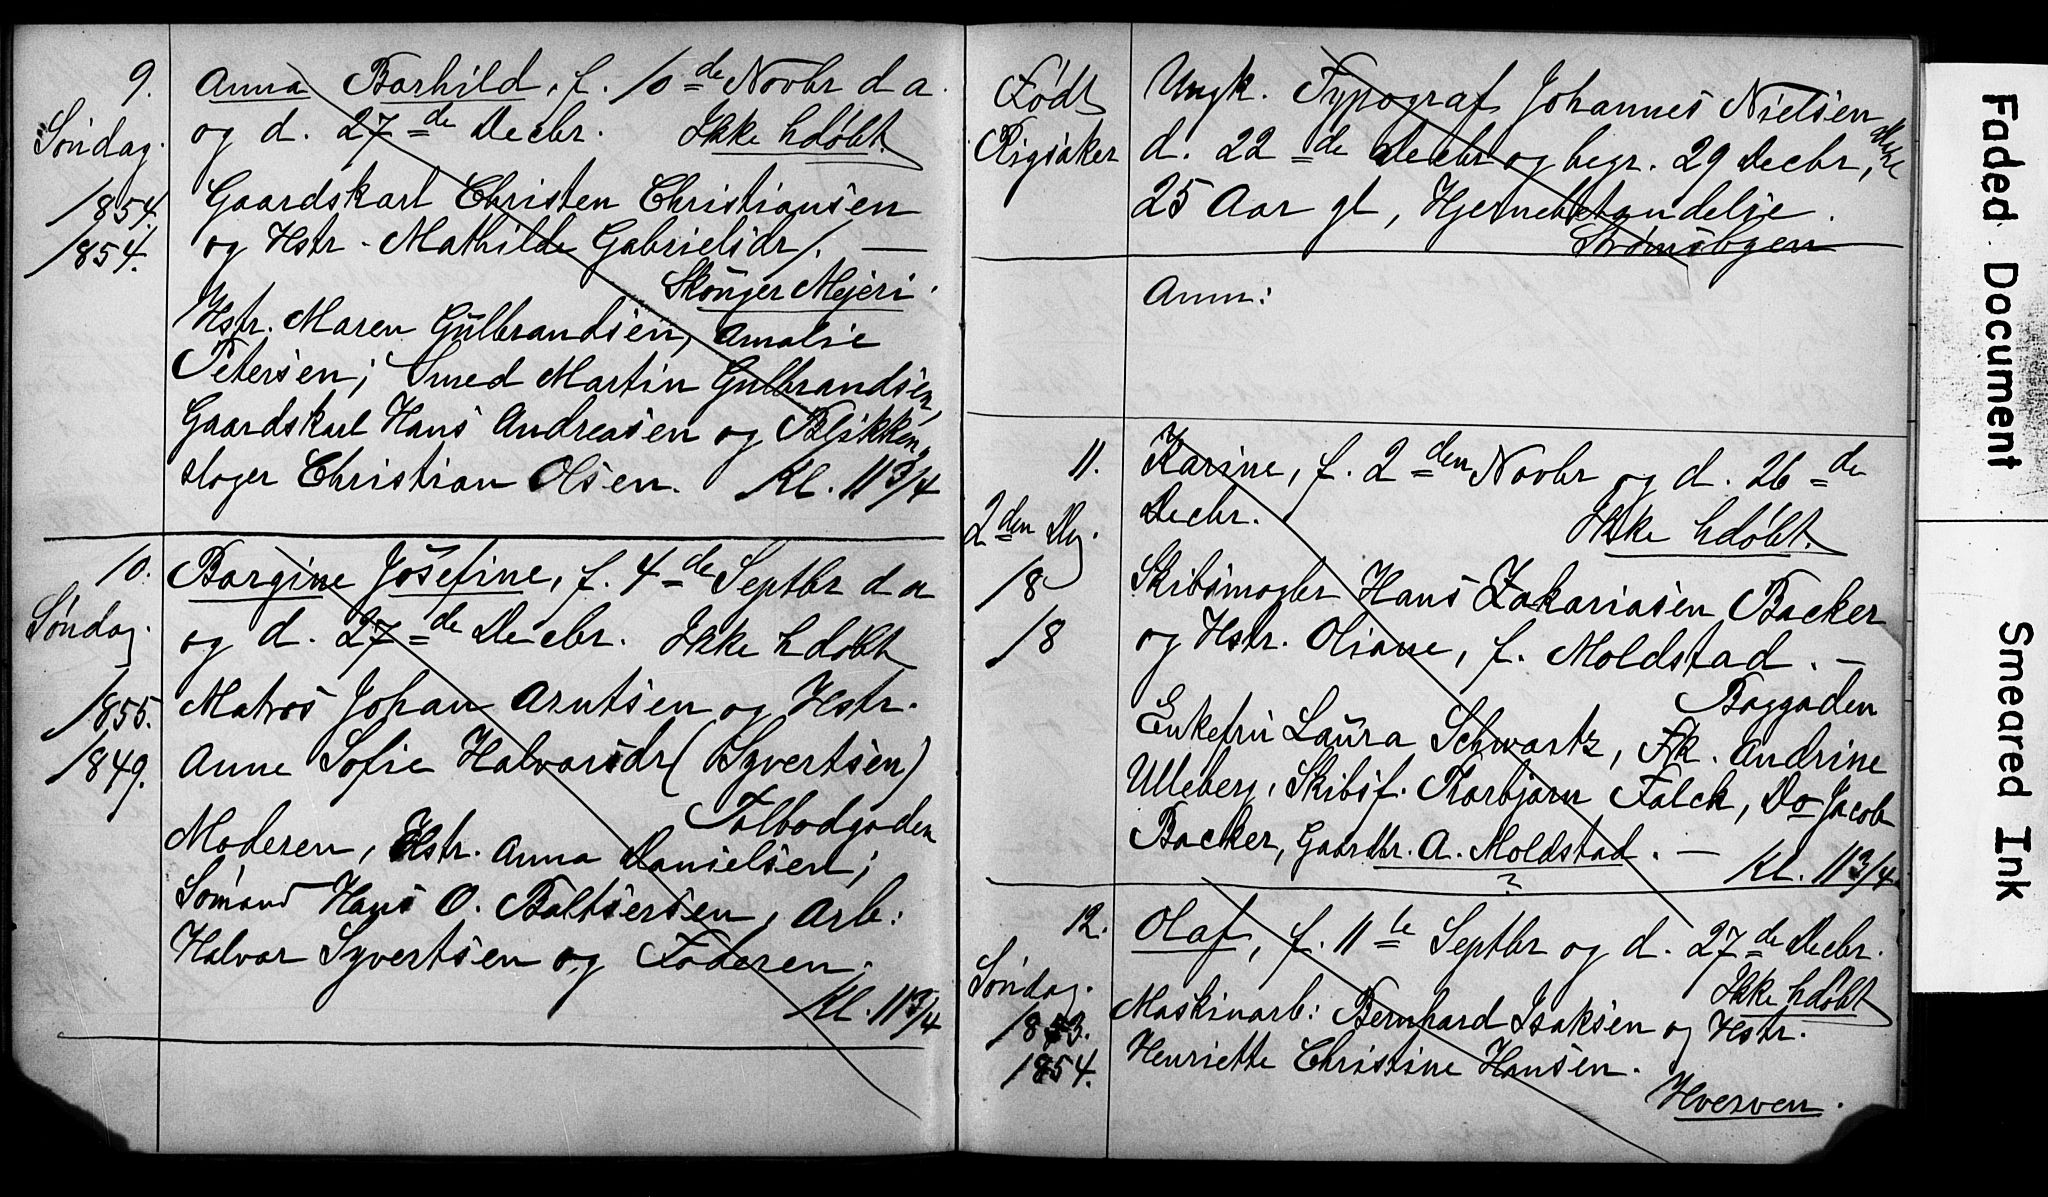 9.
Anna Borhild, f. 10de Novbr d a.
Søndag.
og d. 27de Decbr. Ikke hdøbt
1854.
Gaardskarl Christen Christiansen
1854.
og Hstr. Mathilde Gabrielsdr /. —
Skonger Mejeri.
Hstr. Maren Gulbrandsen, Amalie
Petersen; Smed Martin Gulbrandsen,
Gaardskarl Hans Andreasen og Blikken,
slager Christian Olsen. Kl. 11 3/4
10.
Borgine Josefine, f. 4de Septbr d a
Søndag.
og d. 27de Decbr. Ikke hdøbt
1855.
Matros Johan Arntsen og Hstr.
1849.
Anne Sofie Halvorsdr (Syvertsen)
Tolbodgaden
Moderen, Hstr. Anna Danielsen;
Sømand Hans O. Baltsersen, Arb:
Halvor Syvertsen og Faderen.
Kl. 11 3/4
Født
Ringsaker
Ungk. Typograf Johannes Nielsen
d. 22de Decbr og begr. 29 Decbr,
25 Aar gl, Hjernebetændelse.
Strømsbyen
Anm:
11.
Karine, f. 2den Novbr og d. 26de
2den Dg.
Decbr. Ikke hdøbt.
18
Skibsmægler Hans Zakariasen Backer
18
og Hstr. Oliane, f. Moldstad. —
Baggaden
Enkefru Laura Schwartz, Frk. Andrine
Ulleberg, Skibsf. Thorbjørn Falck, Do Jacob
Backer, Gaardbr. A. Moldstad. — Kl. 11 3/4
?
12.
Olaf, f. 11te Septbr og d. 27de Decbr.
Søndag.
Ikke hdøbt
1853.
Maskinarb: Bernhard Isaksen og Hstr.
1854.
Henriette Christine Hansen.
Hverven.
Faded Document
Smeared Ink